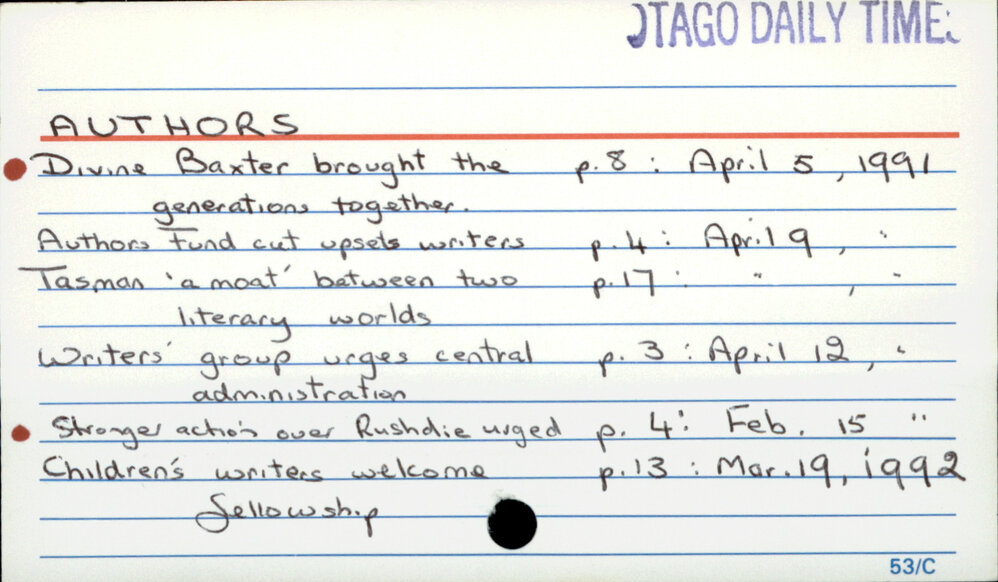 OTAGO DAILY TIMES
AUTHORS
Divine Baxter brought the p. 8 : April 5, 1991
generations together.
Authors Fund cut upsets writers p. 4 : April 9, "
Tasman 'a moat' between two p. 17 : " , "
literary worlds
Writers' group urges central p. 3 : April 12, "
administration
Stronger action over Rushdie urged p. 4 : Feb. 15 "
Children's writers welcome p. 13 : Mar. 19, 1992
fellowship
53/C